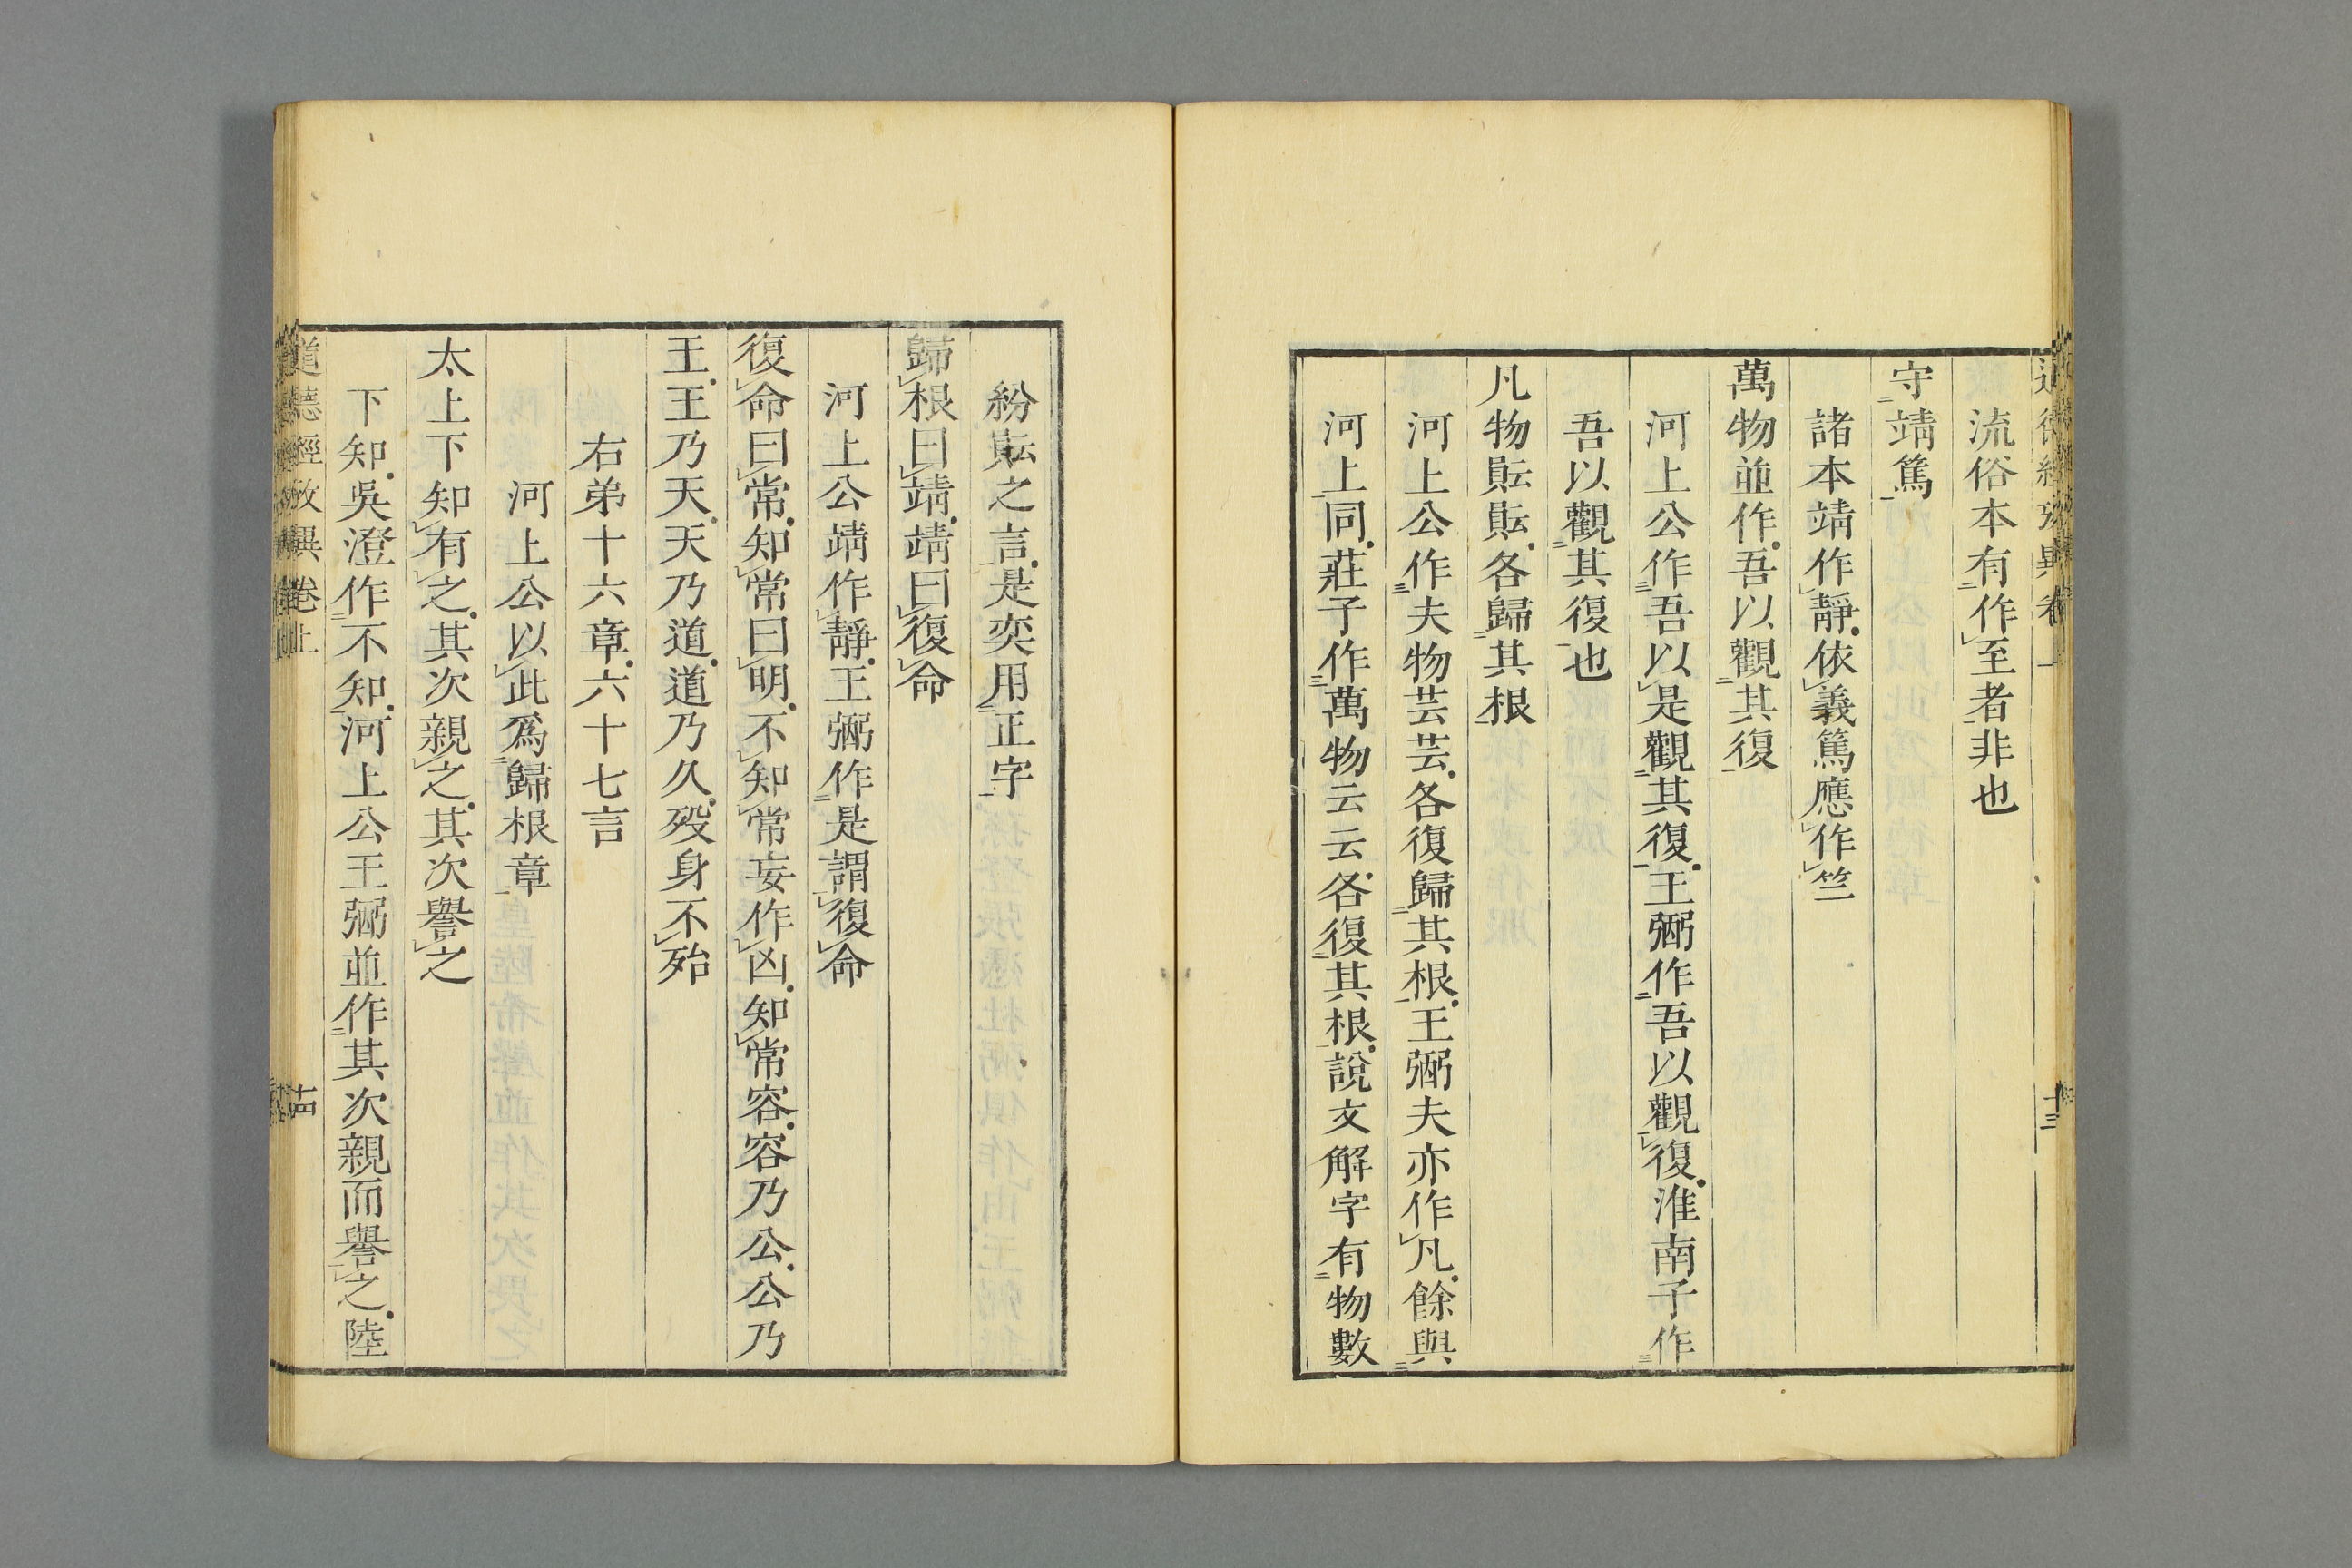 道德經攷異卷上
十三
流俗本有作至者非也
守靖篤
諸本靖作靜依義篤應作竺
萬物並作吾以觀其復
河上公作吾以是觀其復王弼作吾以觀復淮南子作
吾以觀其復也
凡物䰟䰟各歸其根
河上公作夫物芸芸各復歸其根王弼夫亦作凡餘與
河上同莊子作萬物云云各復其根說文解字有物數
紛䰟之言是奕用正字
歸根曰靖靖曰復命
河上公靖作靜王弼作是謂復命
復命曰常知常曰明不知常妄作凶知常容容乃公公乃
王王乃天天乃道道乃久歿身不殆
右弟十六章六十七言
河上公以此爲歸根章
太上下知有之其次親之其次譽之
下知吳澄作不知河上公王弼並作其次親而譽之陸
道德經攷異卷上
十四